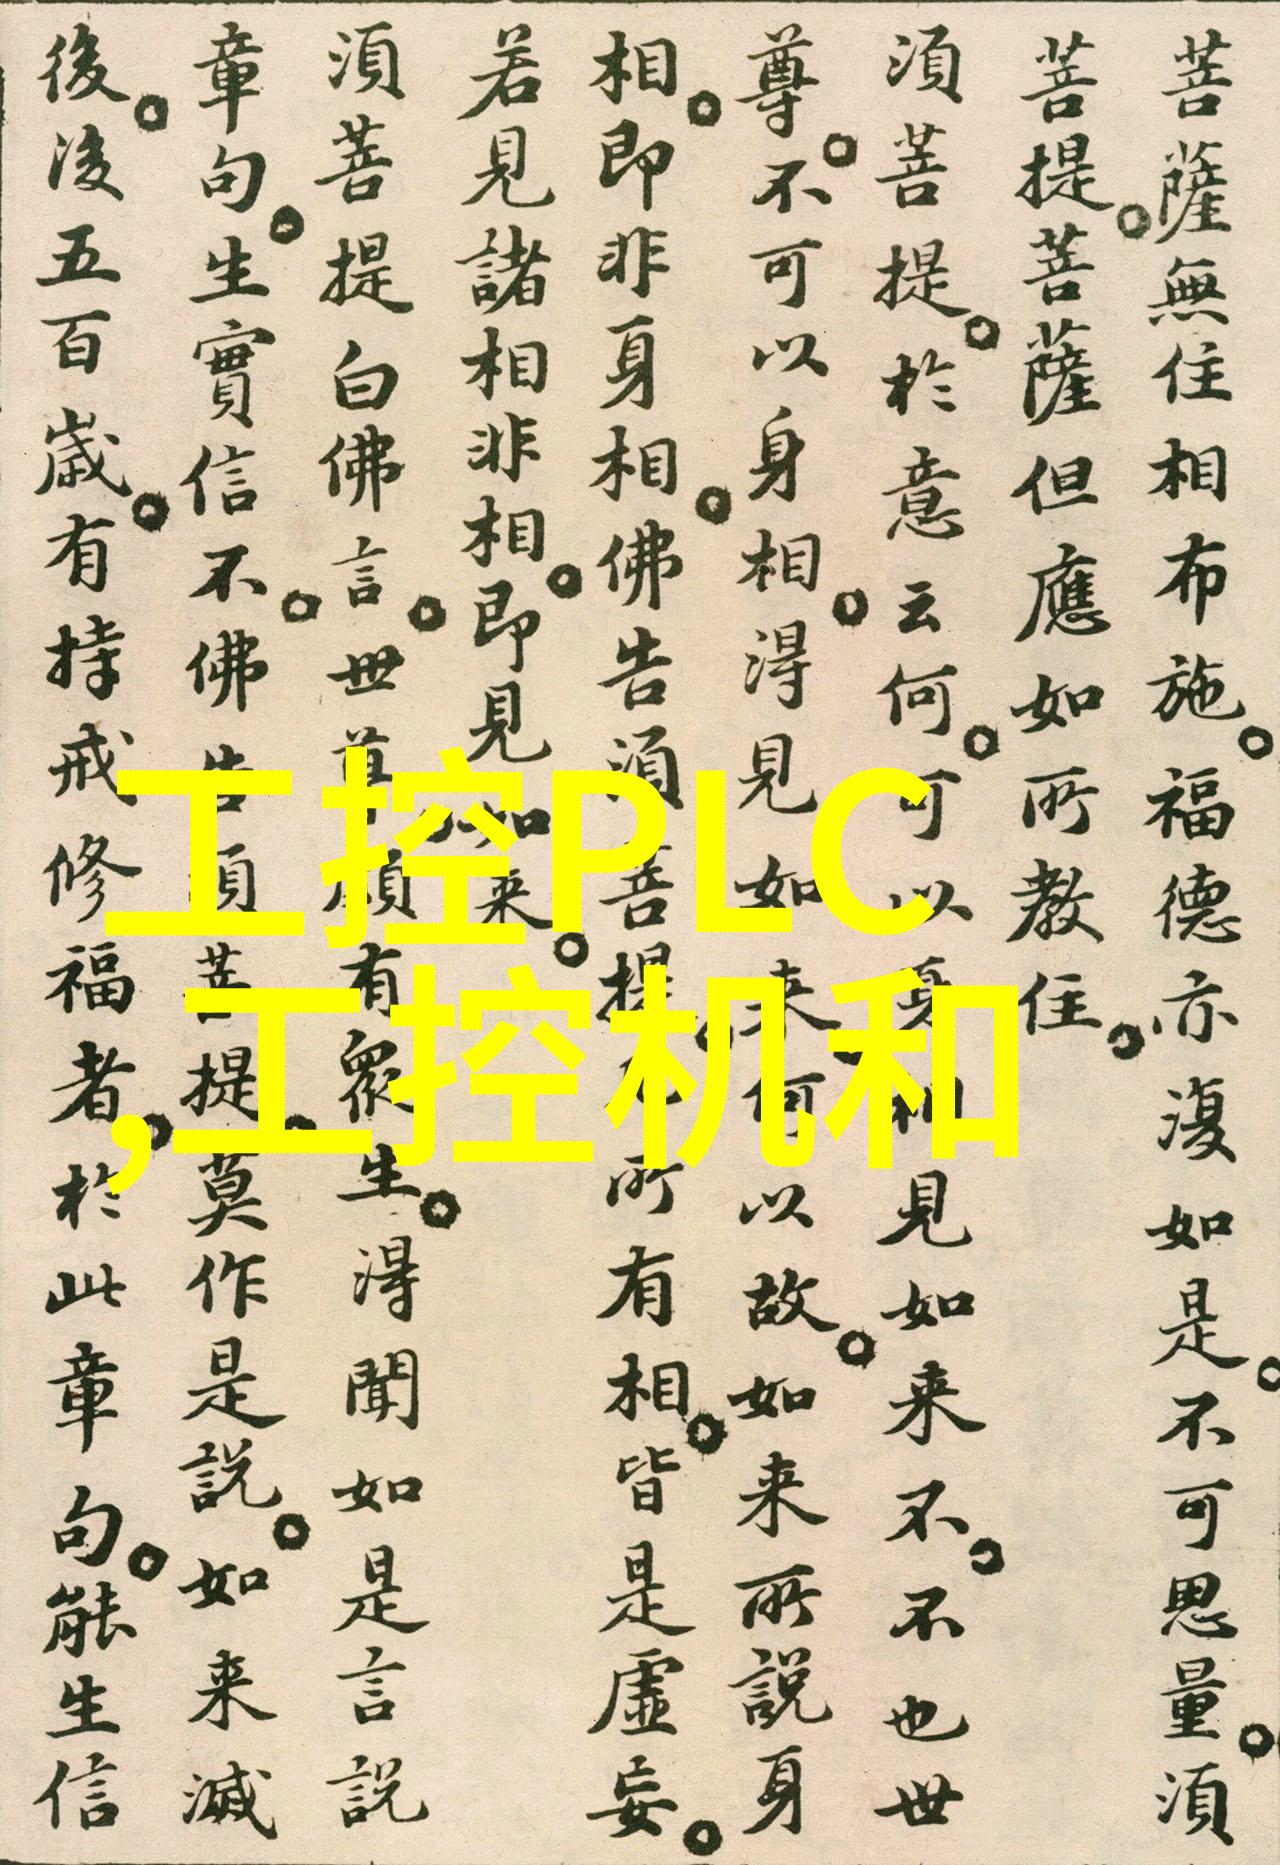 菩薩無住相布施。福德亦復如是。不可思量。須
菩提。菩薩但應如所教住。
須菩提。於意云何。可以身相見如来不。不也世
尊。不可以身相。得見如来。何以故。如来所說身
相。即非身相。佛告須菩提。凡所有相。皆是虛妄。
若見諸相非相。即見如来。
須菩提白佛言。世尊。頗有衆生。得聞如是言説
章句。生實信不。佛告須菩提。莫作是説。如来滅
後。後五百歲。有持戒修福者。於此章句。能生信
工控PLC
,工控机和